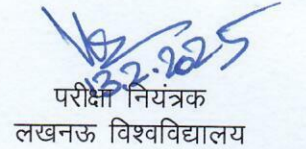 13.2.2025
परीक्षा नियंत्रक
लखनऊ विश्वविद्यालय